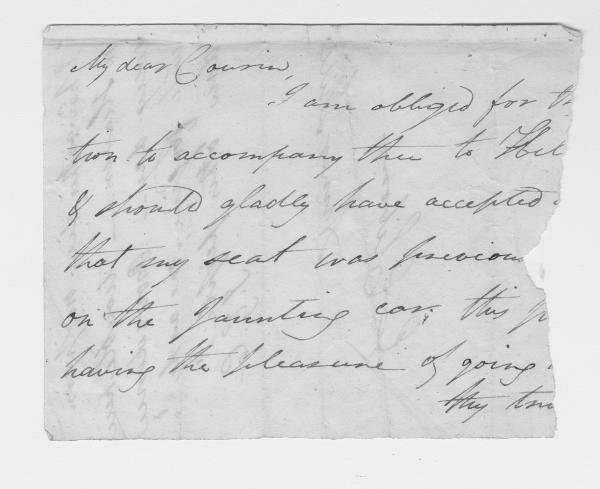 My dear Cousin,
I am obliged for th
tion to accompany thee to Hil
& should gladly have accepted
that my seat was previous
on the Jaunting car. this p
having the pleasure of going
thy tru